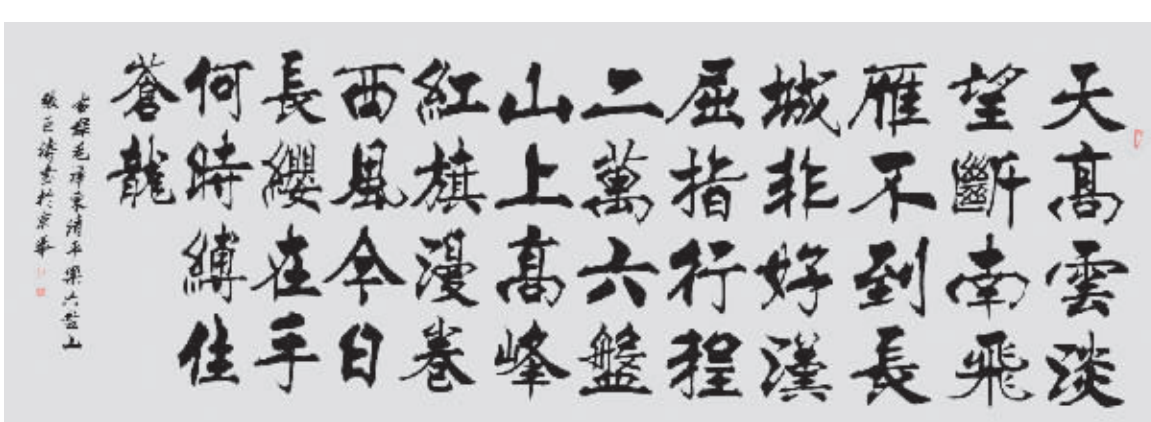 天髙雲淡
望斷南飛
雁不到長
城非好漢
屈指行程
二萬六盤
山上髙峰
紅旗漫卷
西風今日
長纓在手
何時縛住
蒼龍
右錄毛泽東清平樂六盘山
張巨濤書於京華